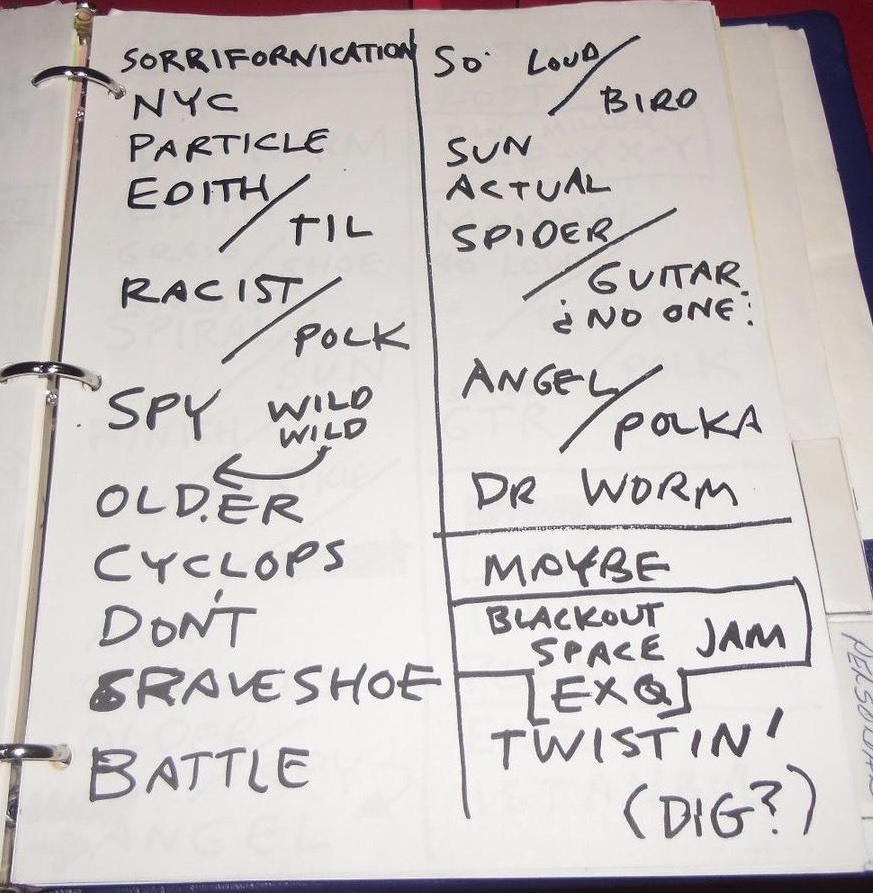 SORRIFORNICATION
NYC
PARTICLE
EDITH/
TIL
RACIST/
POLK
SPY WILD
WILD
OLDER
CYCLOPS
DON'T
GRAVESHOE
BATTLE
SO LOUD/
BIRD
SUN
ACTUAL
SPIDER/
GUITAR
¿NO ONE:
ANGEL/
POLKA
DR WORM
MAYBE
BLACKOUT
SPACE JAM
EXQ
TWISTIN'
(DIG?)